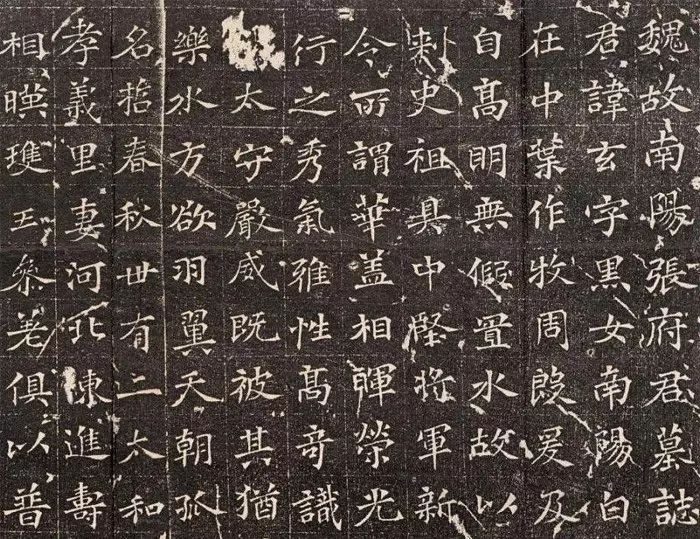 魏故南陽張府君墓誌
君諱玄字黑女南陽白
在中葉作牧周殷爰及
自高明無假置水故以
刺史祖具中堅將軍新
令所謂華盖相暉榮光
行之秀氣雅性高奇識
太守嚴威既被其猶
樂水方欲羽翼天朝抓
名哲春秋卅有二太和
孝義里妻河北陳進壽
相暎瓊玉參差俱以普